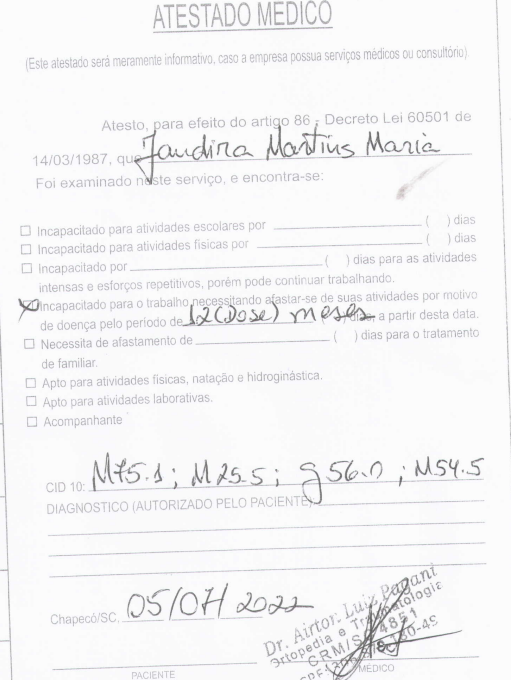 ATESTADO MÉDICO
(Este atestado será meramente informativo, caso a empresa possua serviços médicos ou consultório).
Atesto, para efeito do artigo 86 - Decreto Lei 60501 de
14/03/1987, que Jandira Martins Maria
Foi examinado neste serviço, e encontra-se:
Incapacitado para atividades escolares por ( ) dias
Incapacitado para atividades físicas por ( ) dias
Incapacitado por ( ) dias para as atividades
intensas e esforços repetitivos, porém pode continuar trabalhando.
Incapacitado para o trabalho necessitando afastar-se de suas atividades por motivo
de doença pelo período de 12 (Dose) meses a partir desta data.
Necessita de afastamento de ( ) dias para o tratamento
de familiar.
Apto para atividades físicas, natação e hidroginástica.
Apto para atividades laborativas.
Acompanhante
CID 10: M75.1; M25.5; G56.0; M54.5
DIAGNOSTICO (AUTORIZADO PELO PACIENTE)
Chapecó/SC. 05/07/2022
Dr. Airton Luiz Pagani
Ortopedia e Traumatologia
CRM/S 4851
PACIENTE MÉDICO